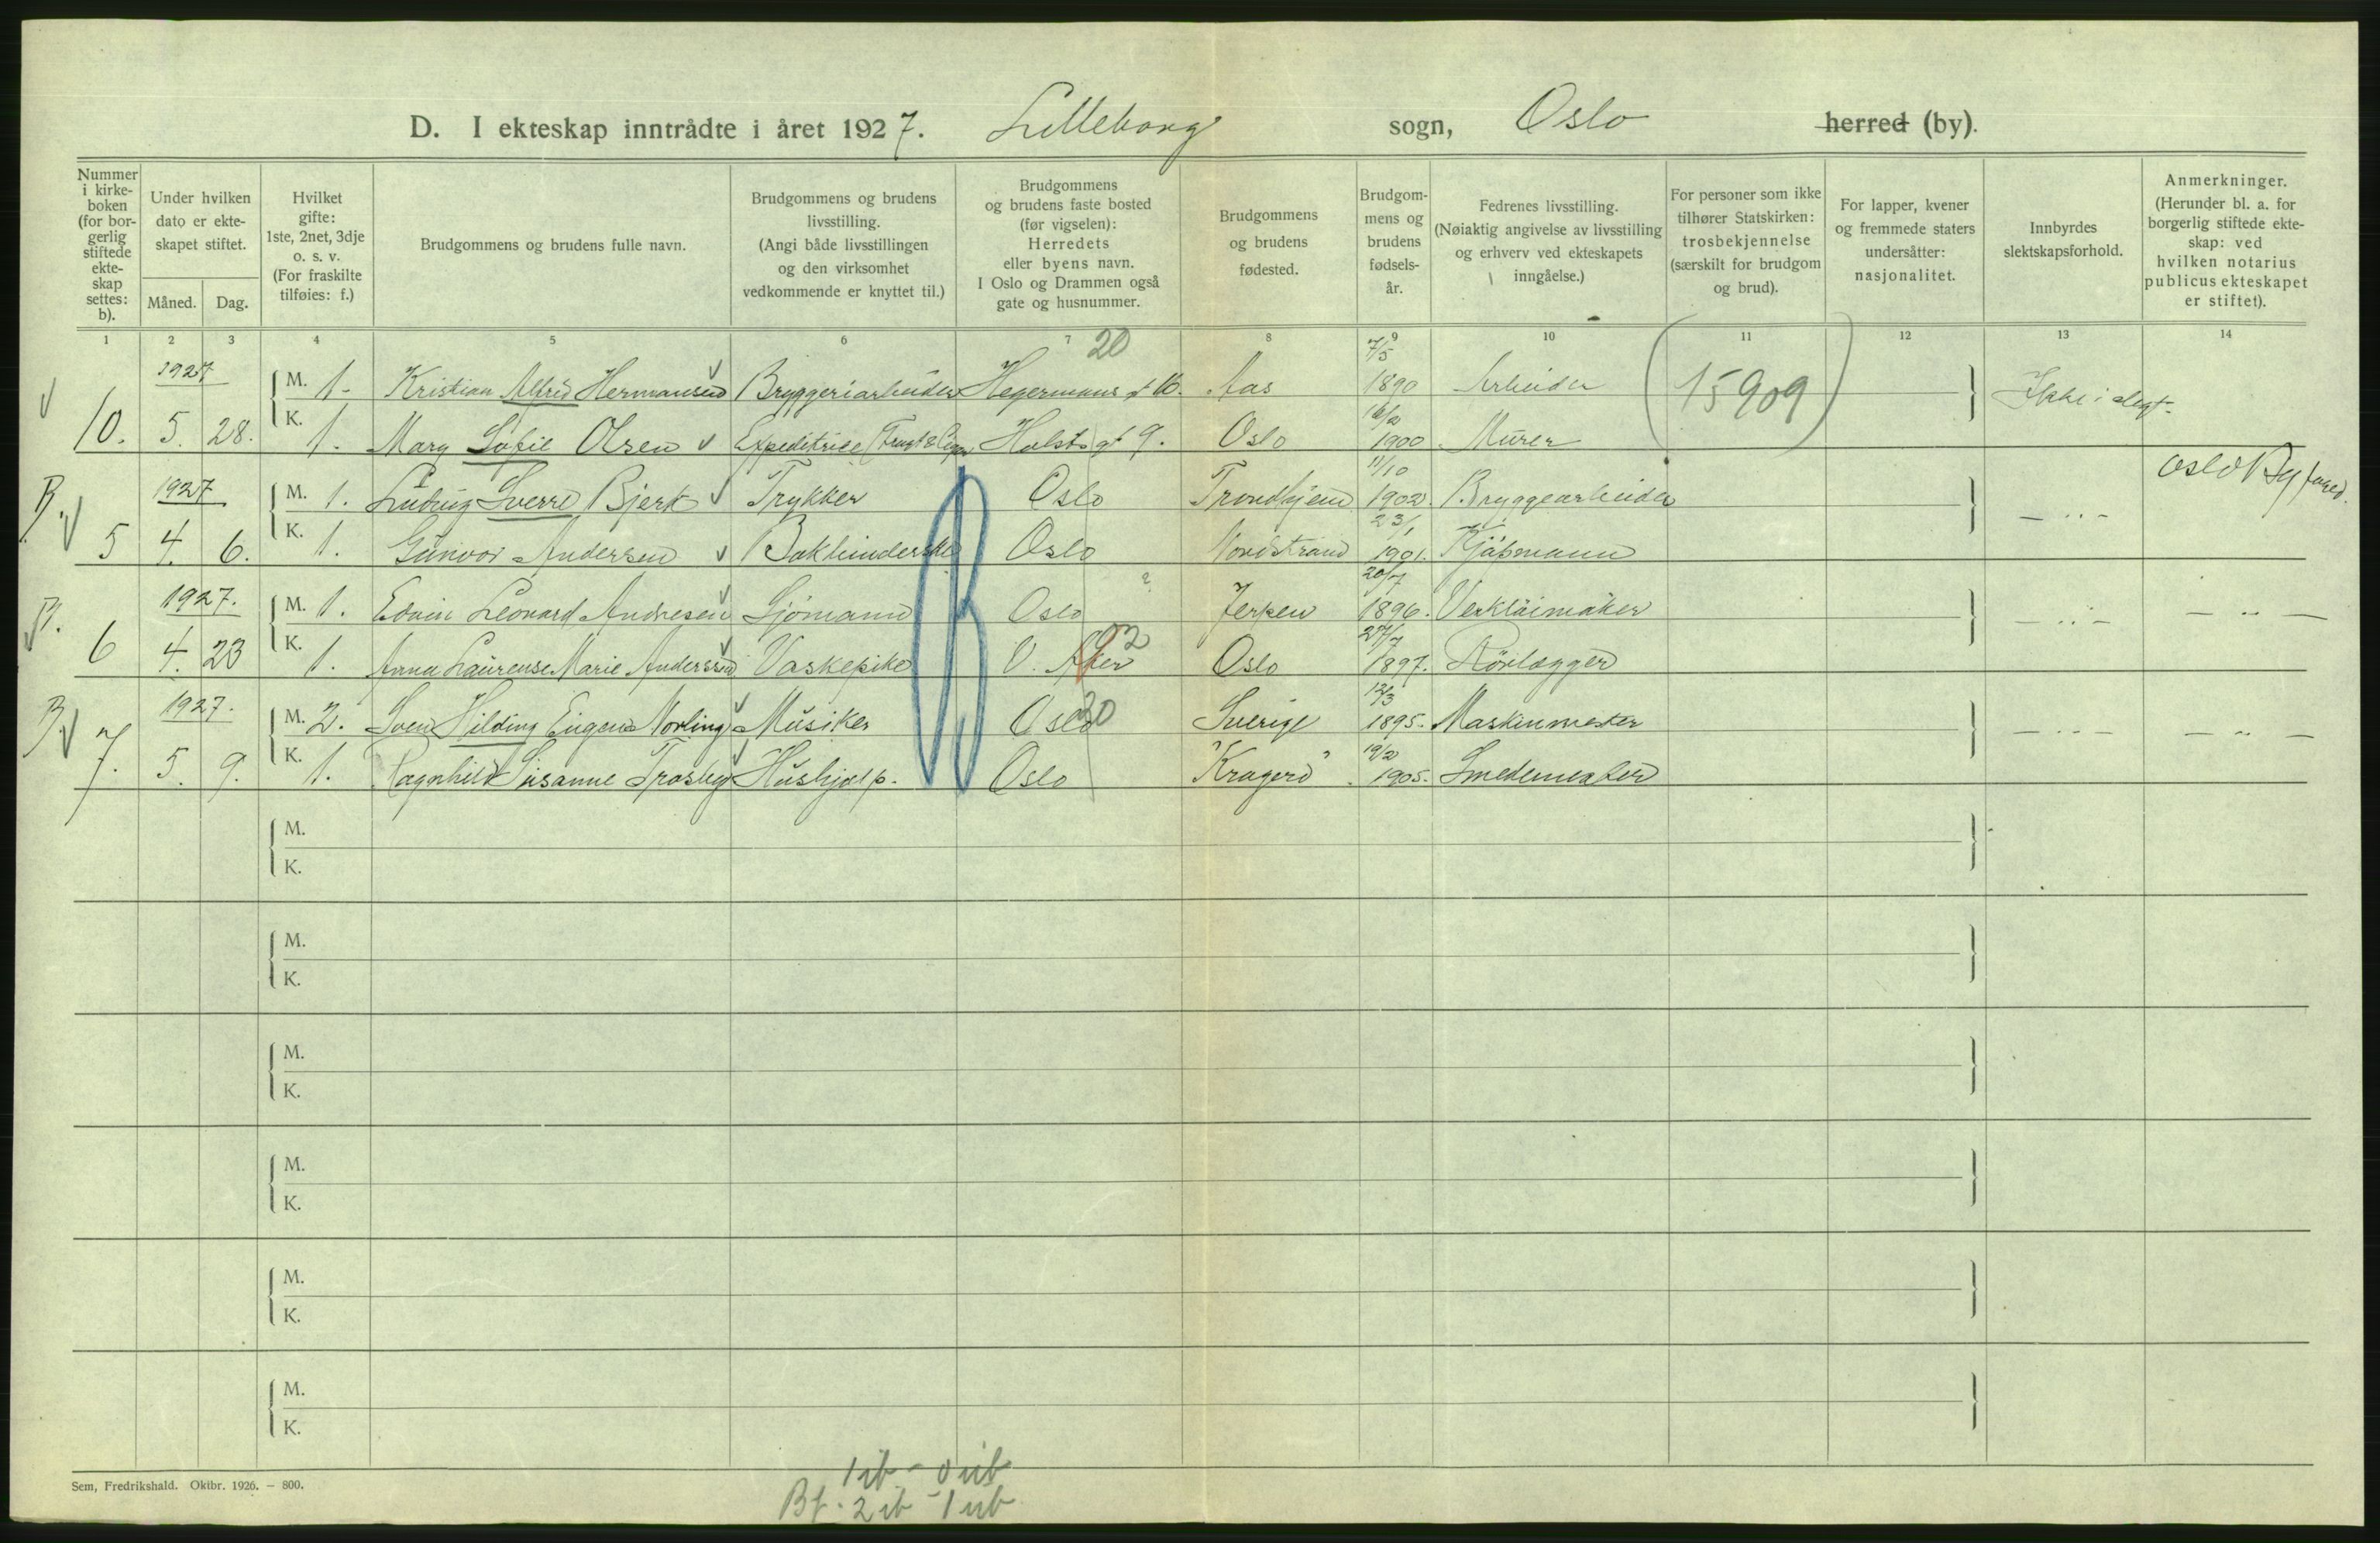 D. I ekteskap inntrådte i året 1927. Lilleborg sogn, Oslo herred (by).
Nummer i kirke- boken (for bor- gerlig stiftede ekte- skap settes: b).
Under hvilken dato er ekte- skapet stiftet.
Måned. Dag.
Hvilket gifte: 1ste, 2net, 3dje o. s. v. (For fraskilte tilføies: f.)
Brudgommens og brudens fulle navn.
Brudgommens og brudens livsstilling. (Angi både livsstillingen og den virksomhet vedkommende er knyttet til.)
Brudgommens og brudens faste bosted (før vigselen): Herredets eller byens navn. I Oslo og Drammen også gate og husnummer.
Brudgommens og brudens fødested.
Brudgom- mens og brudens fødsels- år.
Fedrenes livsstilling. (Nøiaktig angivelse av livsstilling og erhverv ved ekteskapets inngåelse.)
For personer som ikke tilhører Statskirken: trosbekjennelse (særskilt for brudgom og brud).
For lapper, kvener og fremmede staters undersåtter: nasjonalitet.
Innbyrdes slektskapsforhold.
Anmerkninger. (Herunder bl. a. for borgerlig stiftede ekte- skap: ved hvilken notarius publicus ekteskapet er stiftet).
1 2 3 4 5 6 7 8 9 10 11 12 13 14
20
1927 M. 1. Kristian Alfred Hermansen Bryggeriarbeider Hegermans gt 16. Aas 7/5 1890 Arbeider (15909) Ikke i slegt.
10. 5. 28. K. 1. Mary Sofie Olsen Expeditrise Holsts gt 9. Oslo 1900 Murer
B. 1927 M. 1. Ludvig Sverre Bjerk Trykker Oslo Trondhjem 11/10 1902. Bryggearbeider — ·· — Oslo Byfoged.
5 4. 6. K. 1. Gunvor Andersen Oslo Nordstrand 23/1 1901. Kjøpmann
B. 1927. M. 1. Edvin Leonard Andresen Sjømann Oslo ? 20/7 1896. Verktøimaker — ·· — — ·· —
6 4. 23 K. 1. Anna Laurense Marie Anderssen Vaskepike V. Aker 02 Oslo 27/7 1897. Rørlægger
B. 1927. M. 2. Sven Hilding Eugen Norling Musiker Oslo 20 Sverige 12/3 1895. Maskinmester — ·· — — ·· —
7. 5. 9. K. 1. Ragnhild Susanne Trosby Hushjælp. Oslo "Kragerø" 19/2 1905. Smedemester
M.
K.
M.
K.
M.
K.
M.
K.
M.
K.
M.
K.
Sem, Fredrikshald. Oktbr. 1926. — 800.
1 ib - 0 ub
Bf. 2 ib - 1 ub